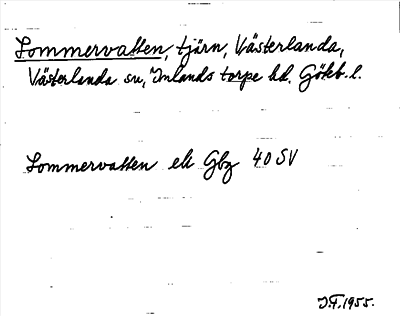 Sommervatten, tjärn, Västerlanda,
Västerlanda sn, Inlands torpe hd. Göteb. l.
Sommervatten ek Gbg 40 SV
J.F. 1955.